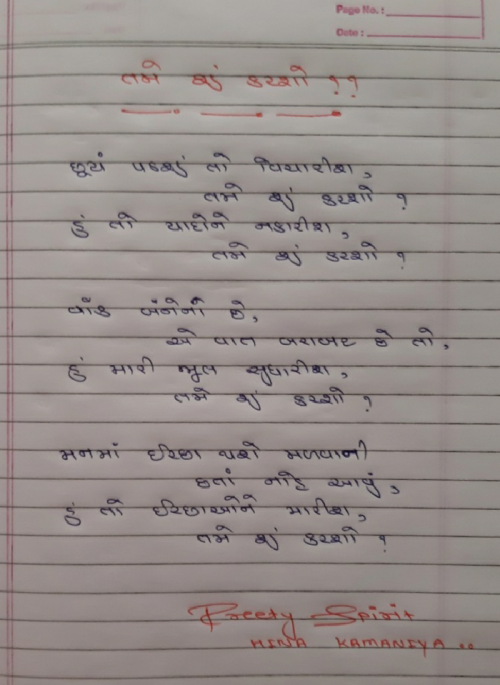 Page No.:
Date :
તમે શું કરશો ??
છૂટાં પડશું તો વિચારીશ,
તમે શું કરશો ?
હું તો યાદોને નકારીશ,
તમે શું કરશો ?
વાઁક બંનેનો છે,
એ વાત બરાબર છે તો,
હું મારી ભૂલ સુધારીશ,
તમે શું કરશો ?
મનમાં ઈચ્છા થશે મળવાની
છતાં નહિ આવું,
હું તો ઈચ્છાઓને મારીશ,
તમે શું કરશો ?
Preety Spirit
HINA KAMANIYA ..